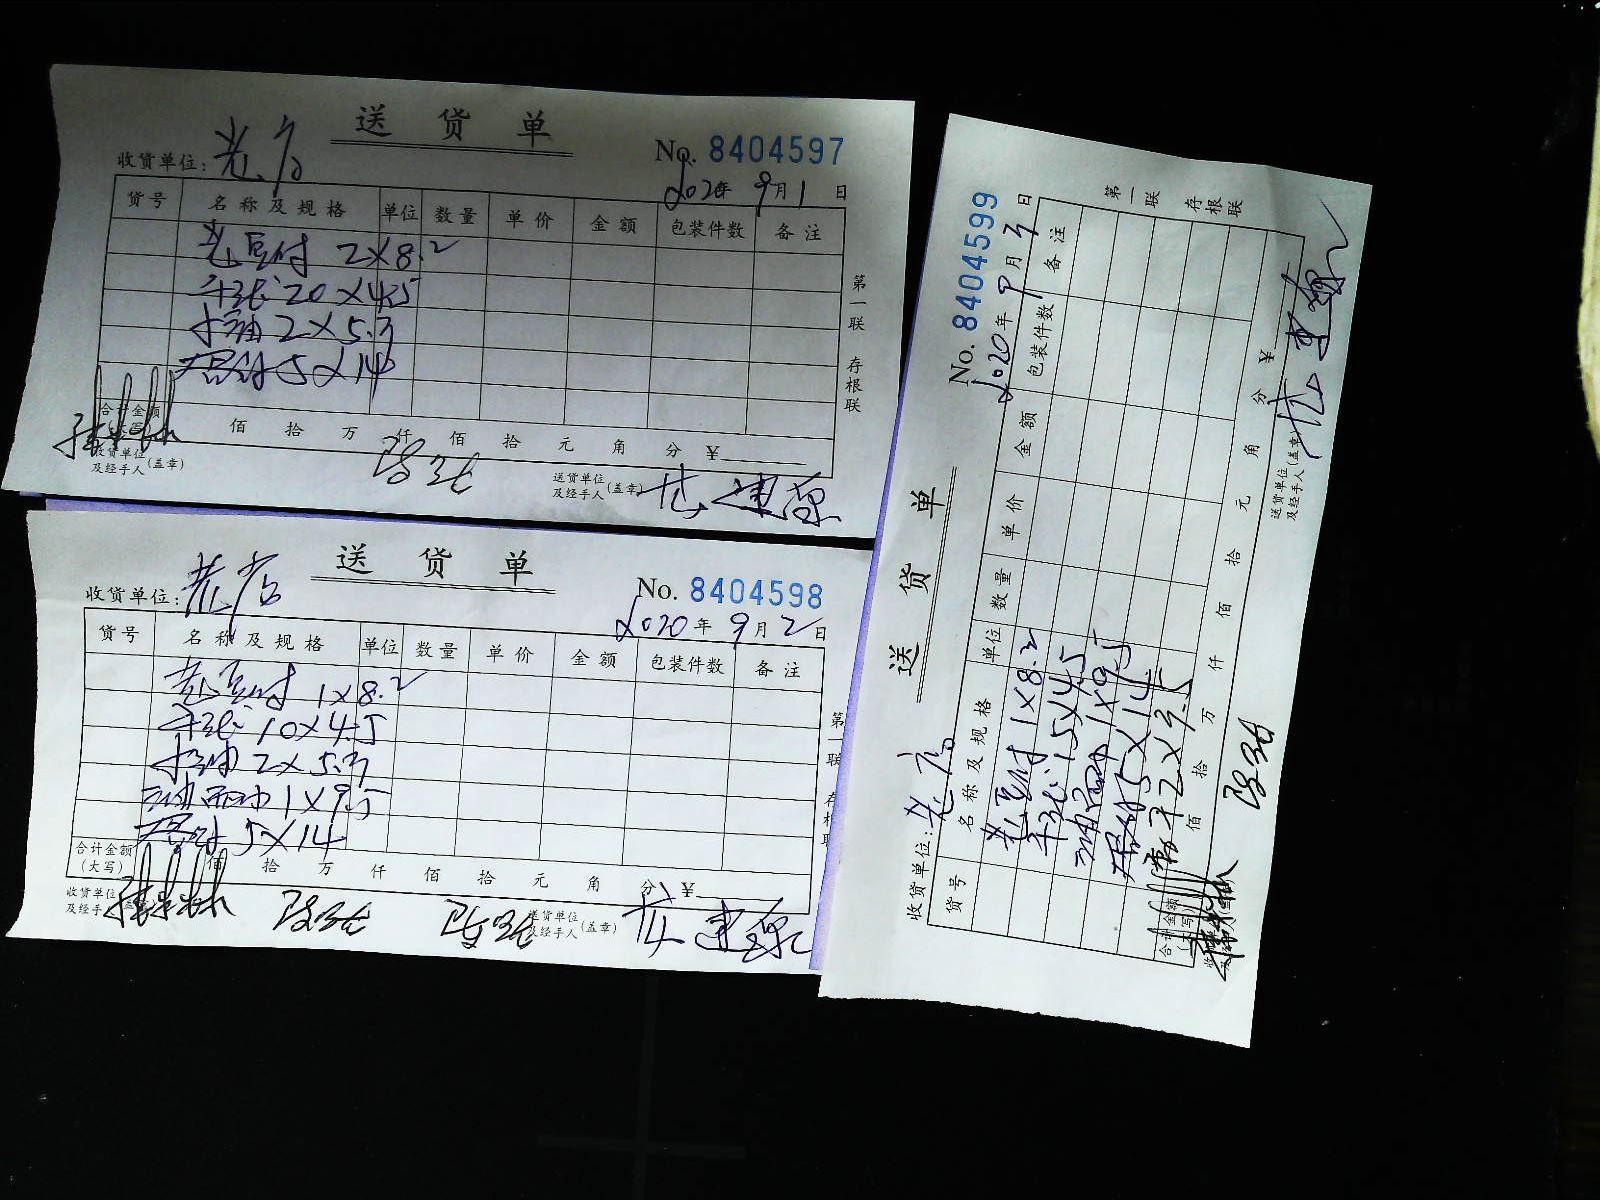 送货单
收货单位: 老店
No. 8404597
2020年 9月1日
货号 名称及规格 单位 数量 单价 金额 包装件数 备注
老豆付 2×8.2
千张 20×4.5
2×5.3
5×14
合计金额(大写) 佰 拾 万 仟 佰 拾 元 角 分 ¥
收货单位及经手人(盖章)
送货单位及经手人(盖章)
第一联 存根联
送货单
收货单位: 老店
No. 8404598
2020年 9月2日
货号 名称及规格 单位 数量 单价 金额 包装件数 备注
老豆付 1×8.2
千张 10×4.5
2×5.3
1×9.5
5×14
合计金额(大写) 佰 拾 万 仟 佰 拾 元 角 分 ¥
收货单位及经手
送货单位及经手人(盖章)
第一联 存根联
送货单
收货单位: 老店
No. 8404599
2020年 9月3日
货号 名称及规格 单位 数量 单价 金额 包装件数 备注
老豆付 1×8.2
千张 15×4.5
1×9.5
5×14
2×9.5
合计金额(大写) 佰 拾 万 仟 佰 拾 元 角 分 ¥
送货单位及经手人(盖章)
第一联 存根联